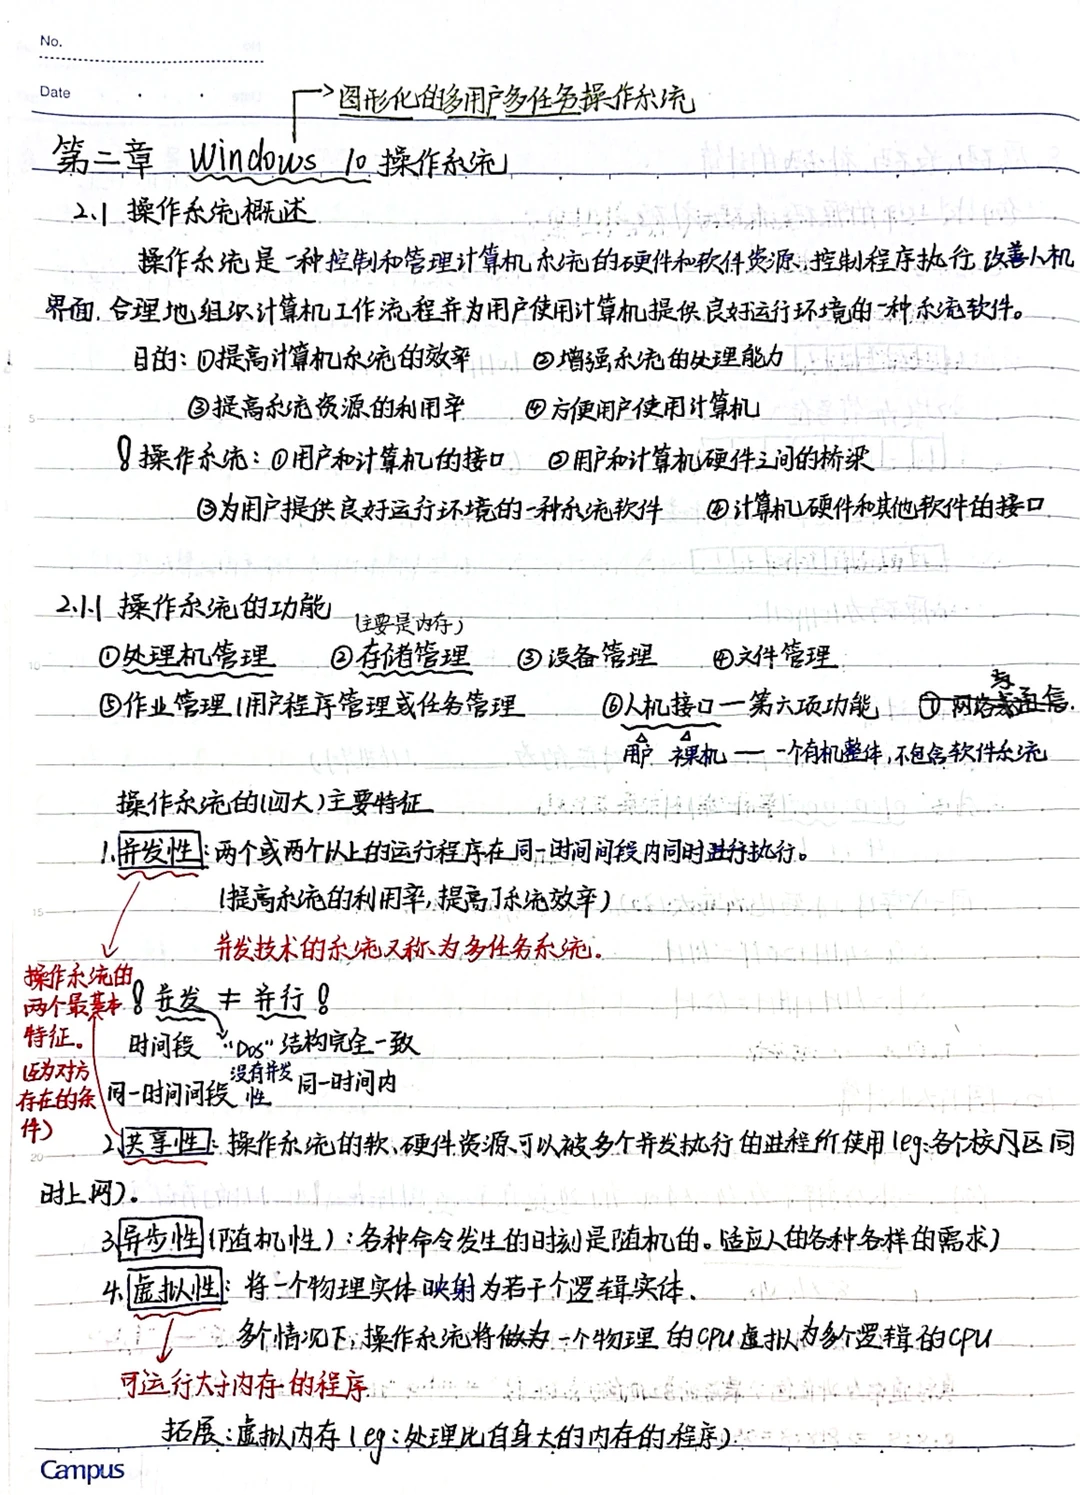 No.
Date
图形化的多用户多任务操作系统
第二章 Windows 10 操作系统
2.1 操作系统概述
操作系统是一种控制和管理计算机系统的硬件和软件资源,控制程序执行,改善人机
界面,合理地组织计算机工作流程并为用户使用计算机提供良好运行环境的一种系统软件。
目的:①提高计算机系统的效率 ②增强系统的处理能力
③提高系统资源的利用率 ④方便用户使用计算机
!操作系统:①用户和计算机的接口 ②用户和计算机硬件之间的桥梁
③为用户提供良好运行环境的一种系统软件 ④计算机硬件和其他软件的接口
2.1.1 操作系统的功能
(主要是内存)
①处理机管理 ②存储管理 ③设备管理 ④文件管理
⑤作业管理(用户程序管理或任务管理 ⑥人机接口一第六项功能 ⑦网络与通信.
用户 裸机 — 一个有机整体,不包含软件系统
操作系统的(四大)主要特征
1.并发性:两个或两个以上的运行程序在同一时间间段内同时进行执行。
(提高系统的利用率,提高了系统效率)
并发技术的系统又称为多任务系统。
操作系统的
两个最基本
特征。
(互为对方
存在的条
件)
!并发 ≠ 并行!
时间段 "Dos" 结构完全一致
没有并发
性
同一时间间段 同一时间内
2.共享性:操作系统的软、硬件资源可以被多个并发执行的进程所使用(eg:各个校门区同
时上网)。
3.异步性(随机性):各种命令发生的时刻是随机的。(适应人的各种各样的需求)
4.虚拟性:将一个物理实体映射为若干个逻辑实体.
多个情况下,操作系统将做为一个物理的CPU虚拟为多个逻辑的CPU
可运行大于内存的程序
拓展:虚拟内存(eg:处理比自身大的内存的程序)
Campus